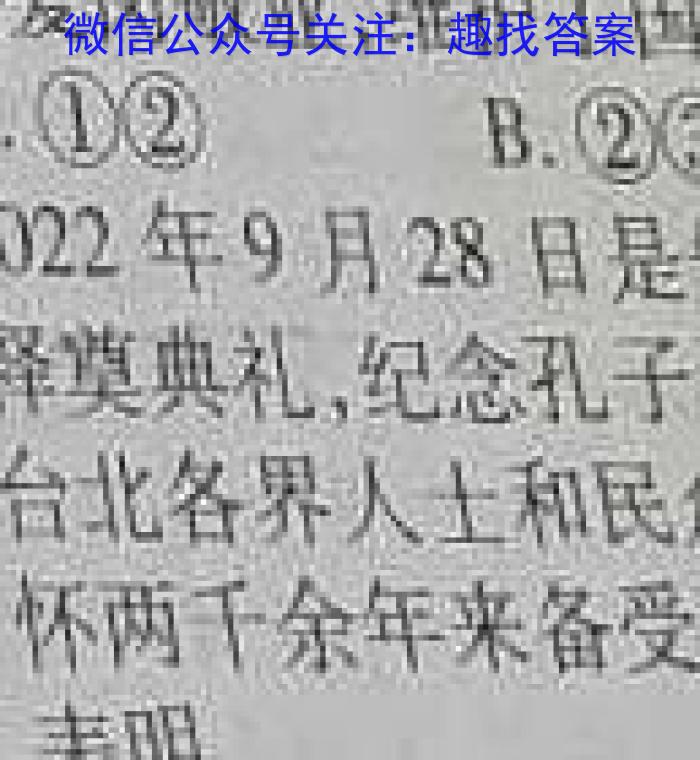 微信公众号关注：趣找答案
. ①② B. ②
022 年 9 月 28 日是
释奠典礼,纪念孔子
台北各界人士和民
怀两千余年来备受
表明